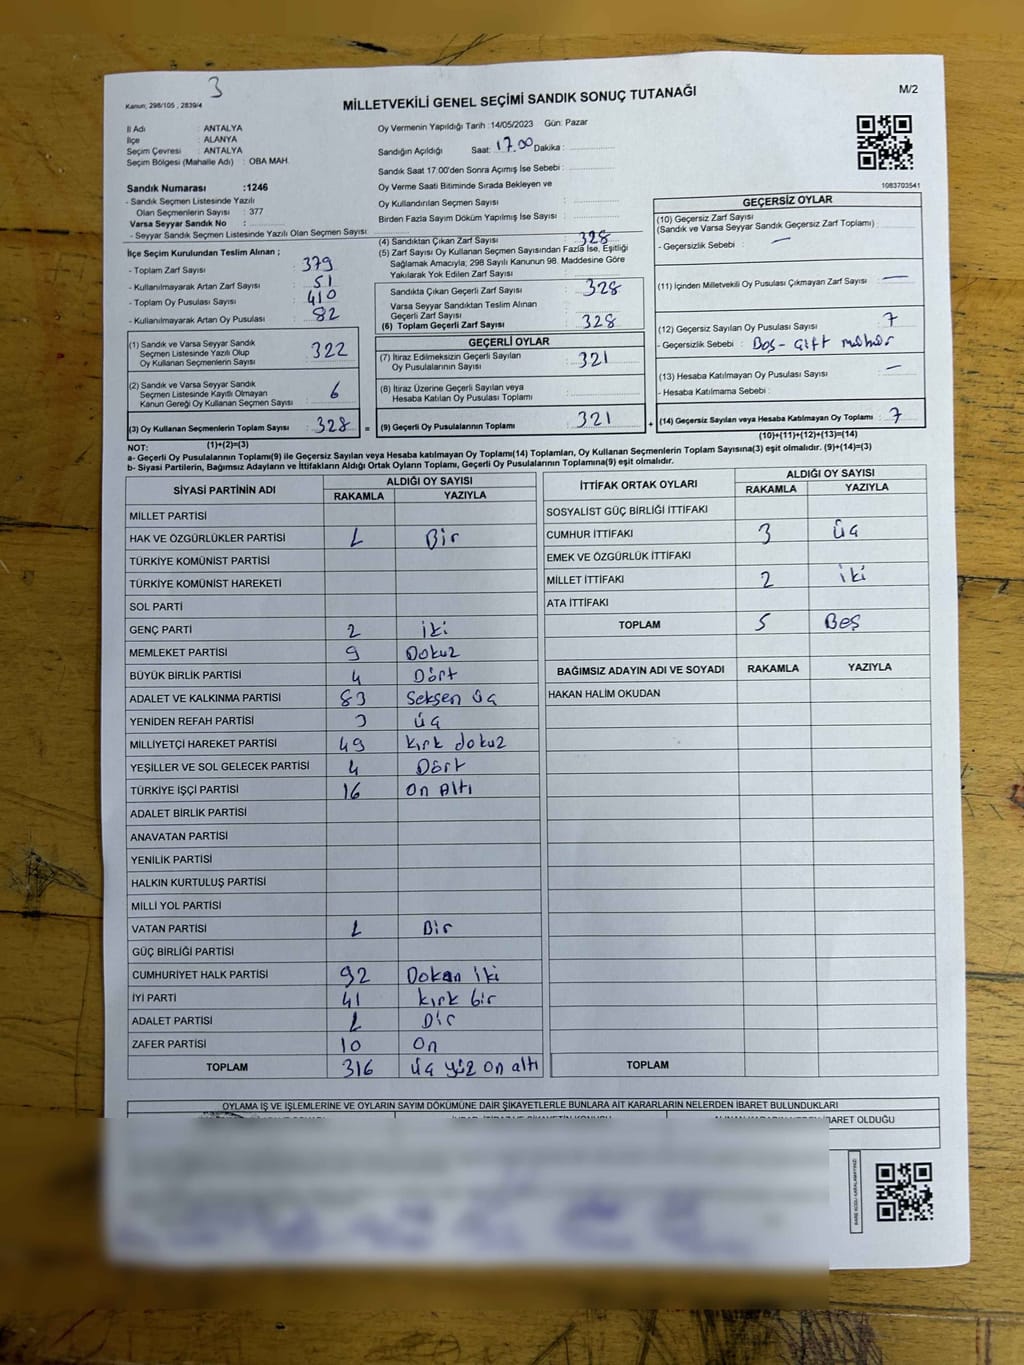 3
Kanun; 298/105 , 2839/4
MİLLETVEKİLİ GENEL SEÇİMİ SANDIK SONUÇ TUTANAĞI
M/2
İl Adı : ANTALYA
İlçe : ALANYA
Seçim Çevresi : ANTALYA
Seçim Bölgesi (Mahalle Adı) : OBA MAH.
Sandık Numarası :1246
- Sandık Seçmen Listesinde Yazılı
Olan Seçmenlerin Sayısı : 377
Varsa Seyyar Sandık No :
- Seyyar Sandık Seçmen Listesinde Yazılı Olan Seçmen Sayısı :
Oy Vermenin Yapıldığı Tarih :14/05/2023 Gün: Pazar
Sandığın Açıldığı Saat: 17.00 Dakika :
Sandık Saat 17.00'den Sonra Açımış İse Sebebi :
Oy Verme Saati Bitiminde Sırada Bekleyen ve
Oy Kullandırılan Seçmen Sayısı :
Birden Fazla Sayım Döküm Yapılmış İse Sayısı :
1083703541
İlçe Seçim Kurulundan Teslim Alınan ;
- Toplam Zarf Sayısı : 379
- Kullanılmayarak Artan Zarf Sayısı : 51
- Toplam Oy Pusulası Sayısı : 410
- Kullanılmayarak Artan Oy Pusulası : 82
(1) Sandık ve Varsa Seyyar Sandık
Seçmen Listesinde Yazılı Olup
Oy Kullanan Seçmenlerin Sayısı : 322
(2) Sandık ve Varsa Seyyar Sandık
Seçmen Listesinde Kayıtlı Olmayan
Kanun Gereği Oy Kullanan Seçmen Sayısı : 6
(3) Oy Kullanan Seçmenlerin Toplam Sayısı : 328 =
(1)+(2)=(3)
(4) Sandıktan Çıkan Zarf Sayısı : 328
(5) Zarf Sayısı Oy Kullanan Seçmen Sayısından Fazla İse, Eşitliği
Sağlamak Amacıyla; 298 Sayılı Kanunun 98. Maddesine Göre
Yakılarak Yok Edilen Zarf Sayısı :
Sandıkta Çıkan Geçerli Zarf Sayısı : 328
Varsa Seyyar Sandıktan Teslim Alınan
Geçerli Zarf Sayısı :
(6) Toplam Geçerli Zarf Sayısı : 328
GEÇERLİ OYLAR
(7) İtiraz Edilmeksizin Geçerli Sayılan
Oy Pusulalarının Sayısı : 321
(8) İtiraz Üzerine Geçerli Sayılan veya
Hesaba Katılan Oy Pusulası Toplamı :
(9) Geçerli Oy Pusulalarının Toplamı : 321 +
GEÇERSİZ OYLAR
(10) Geçersiz Zarf Sayısı
(Sandık ve Varsa Seyyar Sandık Geçersiz Zarf Toplamı) :
- Geçersizlik Sebebi : —
(11) İçinden Milletvekili Oy Pusulası Çıkmayan Zarf Sayısı : —
(12) Geçersiz Sayılan Oy Pusulası Sayısı : 7
- Geçersizlik Sebebi : Boş - Çift mühür
(13) Hesaba Katılmayan Oy Pusulası Sayısı : —
- Hesaba Katılmama Sebebi :
(14) Geçersiz Sayılan veya Hesaba Katılmayan Oy Toplamı : 7
(10)+(11)+(12)+(13)=(14)
NOT:
a- Geçerli Oy Pusulalarının Toplamı(9) ile Geçersiz Sayılan veya Hesaba katılmayan Oy Toplamı(14) Toplamları, Oy Kullanan Seçmenlerin Toplam Sayısına(3) eşit olmalıdır. (9)+(14)=(3)
b- Siyasi Partilerin, Bağımsız Adayların ve İttifakların Aldığı Ortak Oyların Toplamı, Geçerli Oy Pusulalarının Toplamına(9) eşit olmalıdır.
SİYASİ PARTİNİN ADI ALDIĞI OY SAYISI
RAKAMLA YAZIYLA
MİLLET PARTİSİ
HAK VE ÖZGÜRLÜKLER PARTİSİ 1 Bir
TÜRKİYE KOMÜNİST PARTİSİ
TÜRKİYE KOMÜNİST HAREKETİ
SOL PARTİ
GENÇ PARTİ 2 iki
MEMLEKET PARTİSİ 9 Dokuz
BÜYÜK BİRLİK PARTİSİ 4 Dört
ADALET VE KALKINMA PARTİSİ 83 Seksen üç
YENİDEN REFAH PARTİSİ 3 üç
MİLLİYETÇİ HAREKET PARTİSİ 49 kırk dokuz
YEŞİLLER VE SOL GELECEK PARTİSİ 4 Dört
TÜRKİYE İŞÇİ PARTİSİ 16 On Altı
ADALET BİRLİK PARTİSİ
ANAVATAN PARTİSİ
YENİLİK PARTİSİ
HALKIN KURTULUŞ PARTİSİ
MİLLİ YOL PARTİSİ
VATAN PARTİSİ 1 Bir
GÜÇ BİRLİĞİ PARTİSİ
CUMHURİYET HALK PARTİSİ 92 Doksan iki
İYİ PARTİ 41 kırk bir
ADALET PARTİSİ 1 Bir
ZAFER PARTİSİ 10 On
TOPLAM 316 üç yüz on altı
İTTİFAK ORTAK OYLARI ALDIĞI OY SAYISI
RAKAMLA YAZIYLA
SOSYALİST GÜÇ BİRLİĞİ İTTİFAKI
CUMHUR İTTİFAKI 3 üç
EMEK VE ÖZGÜRLÜK İTTİFAKI
MİLLET İTTİFAKI 2 iki
ATA İTTİFAKI
TOPLAM 5 Beş
BAĞIMSIZ ADAYIN ADI VE SOYADI RAKAMLA YAZIYLA
HAKAN HALİM OKUDAN
TOPLAM
OYLAMA İŞ VE İŞLEMLERİNE VE OYLARIN SAYIM DÖKÜMÜNE DAİR ŞİKAYETLERLE BUNLARA AİT KARARLARIN NELERDEN İBARET BULUNDUKLARI
İBARET OLDUĞU